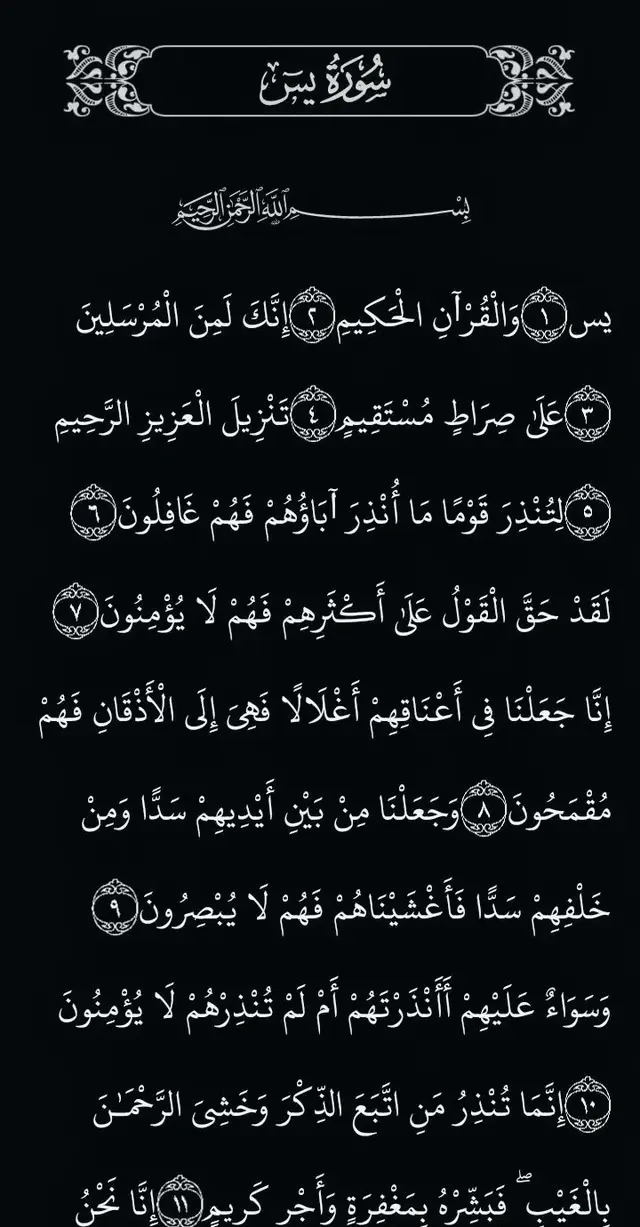 سُورَةُ يسٓ
بِسْمِ ٱللَّهِ ٱلرَّحْمَٰنِ ٱلرَّحِيمِ
يس ١ وَالْقُرْآنِ الْحَكِيمِ ٢ إِنَّكَ لَمِنَ الْمُرْسَلِينَ
٣ عَلَىٰ صِرَاطٍ مُسْتَقِيمٍ ٤ تَنْزِيلَ الْعَزِيزِ الرَّحِيمِ
٥ لِتُنْذِرَ قَوْمًا مَا أُنْذِرَ آبَاؤُهُمْ فَهُمْ غَافِلُونَ ٦
لَقَدْ حَقَّ الْقَوْلُ عَلَىٰ أَكْثَرِهِمْ فَهُمْ لَا يُؤْمِنُونَ ٧
إِنَّا جَعَلْنَا فِي أَعْنَاقِهِمْ أَغْلَالًا فَهِيَ إِلَى الْأَذْقَانِ فَهُمْ
مُقْمَحُونَ ٨ وَجَعَلْنَا مِنْ بَيْنِ أَيْدِيهِمْ سَدًّا وَمِنْ
خَلْفِهِمْ سَدًّا فَأَغْشَيْنَاهُمْ فَهُمْ لَا يُبْصِرُونَ ٩
وَسَوَاءٌ عَلَيْهِمْ أَأَنْذَرْتَهُمْ أَمْ لَمْ تُنْذِرْهُمْ لَا يُؤْمِنُونَ
١٠ إِنَّمَا تُنْذِرُ مَنِ اتَّبَعَ الذِّكْرَ وَخَشِيَ الرَّحْمَـٰنَ
بِالْغَيْبِ ۖ فَبَشِّرْهُ بِمَغْفِرَةٍ وَأَجْرٍ كَرِيمٍ ١١ إِنَّا نَحْنُ